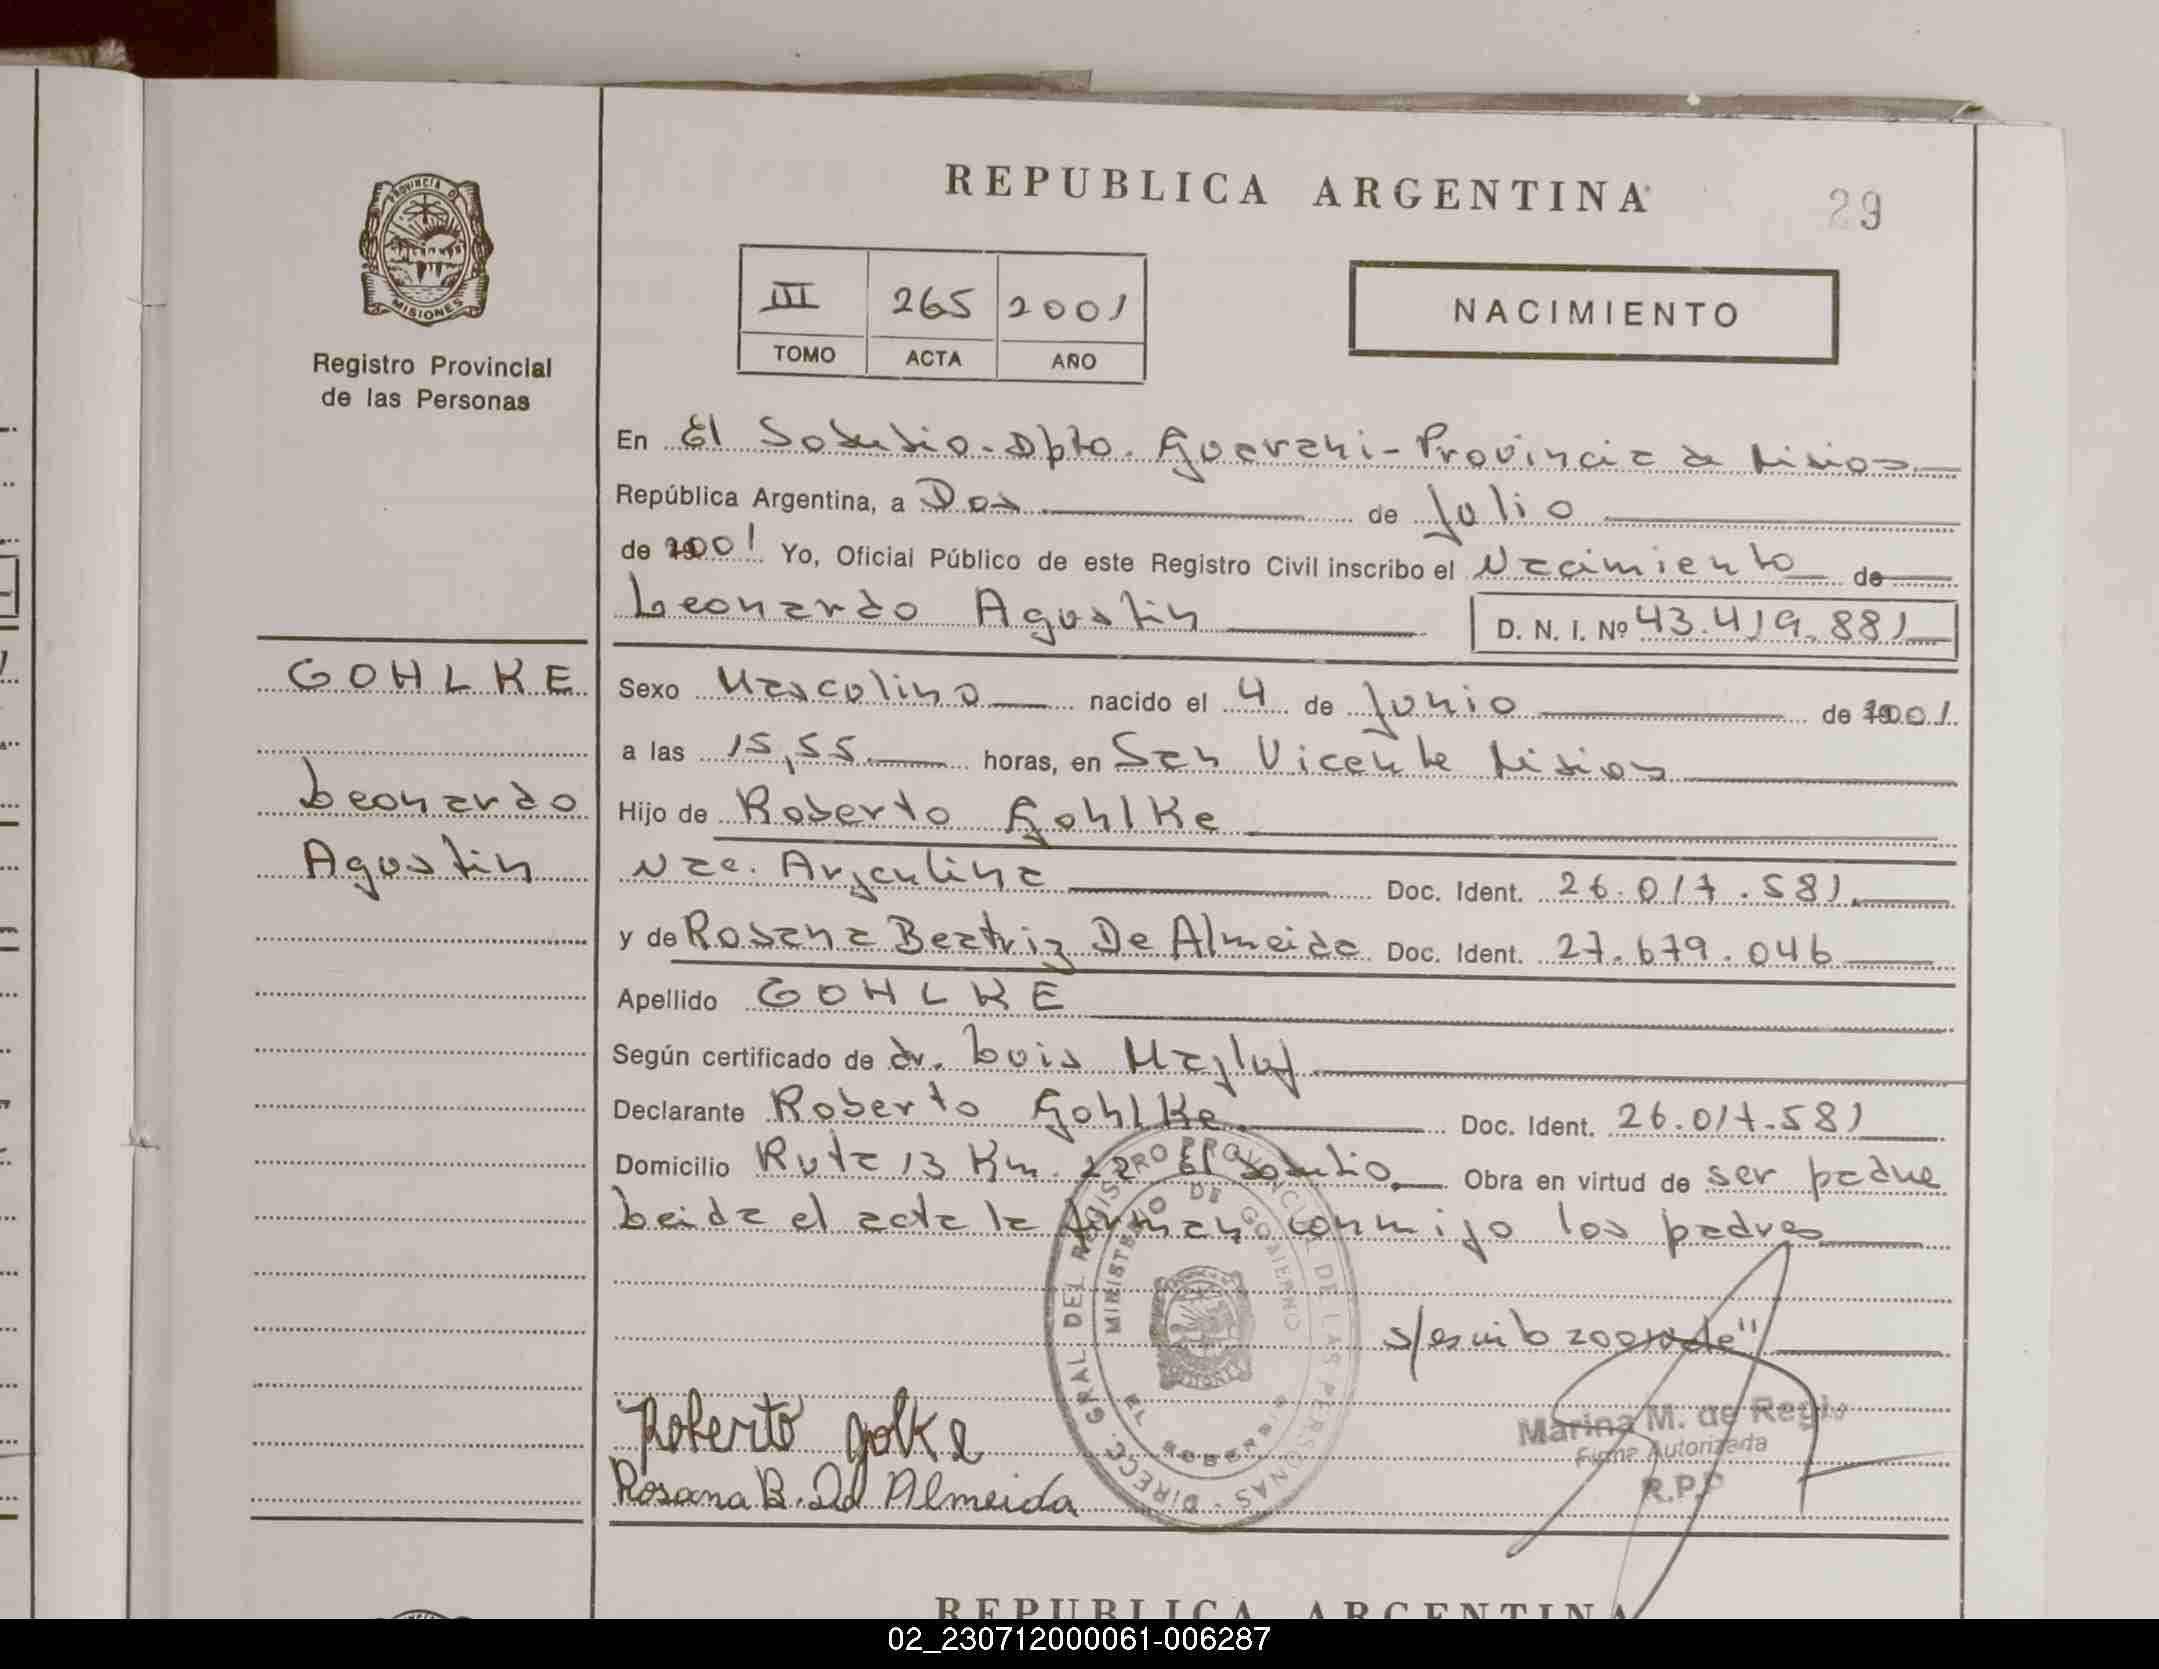 REPUBLICA ARGENTINA
29
PROVINCIA D
MISIONES
Registro Provincial
de las Personas
III 265 2001
TOMO ACTA AÑO
NACIMIENTO
En El Soberbio - Dpto. Guarani - Provincia de Misiones
República Argentina, a Dos de Julio
de 2001 Yo, Oficial Público de este Registro Civil inscribo el Nacimiento de
Leonardo Agustin D. N. I. Nº 43.419.881
GOHLKE
Leonardo
Agustin
Sexo Masculino nacido el 4 de Junio de 2001
a las 15,55 horas, en San Vicente Misiones
Hijo de Roberto Gohlke
Nac. Argentina Doc. Ident. 26.017.581
y de Rosana Beatriz De Almeida Doc. Ident. 27.679.046
Apellido GOHLKE
Según certificado de dr. Luis
Declarante Roberto Gohlke Doc. Ident. 26.017.581
Domicilio Ruta 13 Km. 22 El Soberbio Obra en virtud de ser padre
Leida el acta la firman conmigo los padres
DIRECC. GRAL DEL REGISTRO PROVINCIAL DE LAS PERSONAS
MINISTERIO DE GOBIERNO
EL SOBERBIO
Roberto golke
Rosana B. De Almeida
Marina M. de Regis
Firma Autorizada
R.P.P
REPUBLICA ARGENTINA
02_230712000061-006287